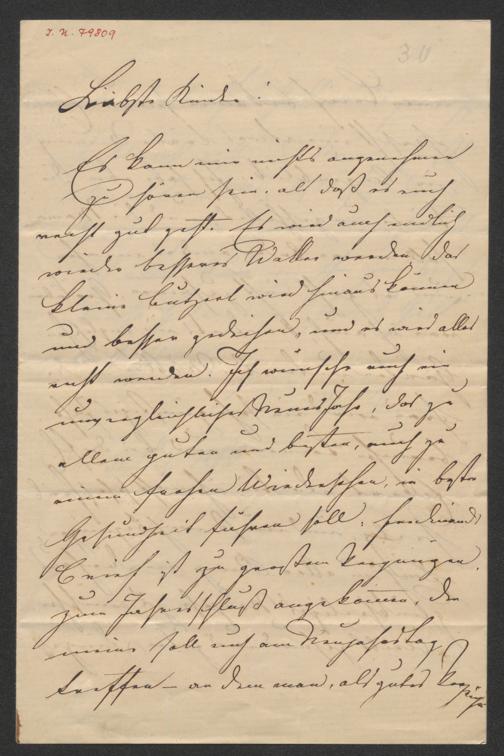 I. N. 79809
30
Liebste Kinder!
Es kann mir nichts angenehmer
zu hören sein, als daß es euch
recht gut geht. Es wird auch endlich
wieder besseres Wetter werden, das
kleine Butzerl wird hinaus können
und besser gedeihen, und es wird alles
recht werden. Ich wünsche euch ein
unvergleichliches Neues Jahr, das zu
allem guten und besten, auch zu
einem frohen Wiedersehen, in bester
Gesundheit führen soll. Ferdinands
Brief ist zu großem Vergnügen,
zum Jahresschluß angekommen, der
meine soll euch am Neujahrstag
treffen – an dem man, als gutes